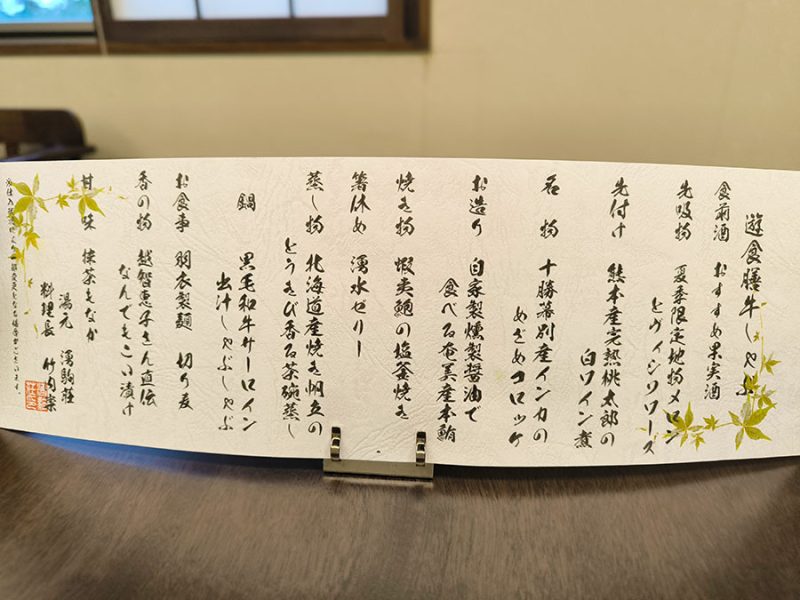 遊食膳牛しゃぶ
食前酒 おすすめ果実酒
先吸物 夏季限定地物メロン
とヴィシソワーズ
先付け 熊本産完熟桃太郎の
白ワイン煮
名物 十勝幕別産インカの
めざめコロッケ
お造り 自家製燻製醤油で
食べる奄美産本鮪
焼き物 蝦夷鮑の塩釜焼き
箸休め 湧水ゼリー
蒸し物 北海道産焼き帆立の
とうきび香る茶碗蒸し
鍋 黒毛和牛サーロイン
出汁しゃぶしゃぶ
お食事 羽衣製麺 切り麦
香の物 越智恵子さん直伝
なんでもこい漬け
甘味 抹茶もなか
湯元 湧駒荘
料理長 竹内栄